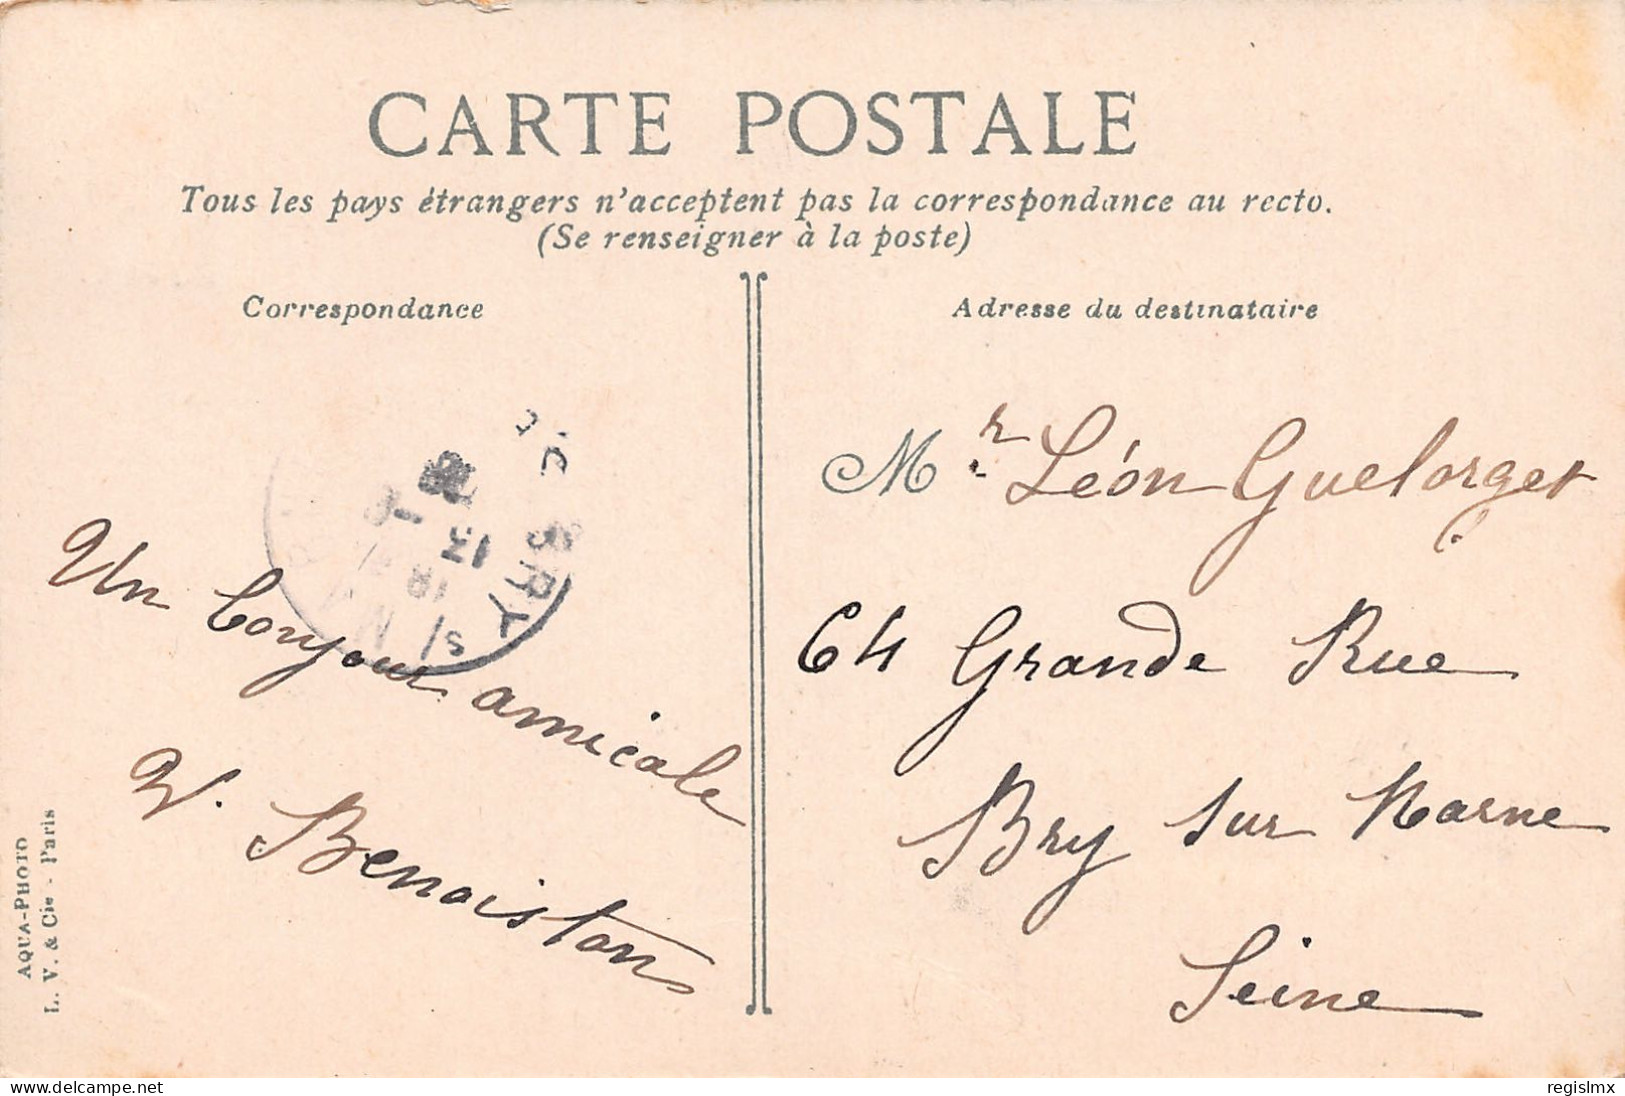 CARTE POSTALE
Tous les pays étrangers n'acceptent pas la correspondance au recto.
(Se renseigner à la poste)
Correspondance
Un bonjour amicale
Benoiston
Adresse du destinataire
Mr. Léon Guelorget
64 Grande Rue
Bry sur Marne
Seine
BRY
S/
AQUA-PHOTO
L. V. & Cie - Paris
www.delcampe.net
regislmx